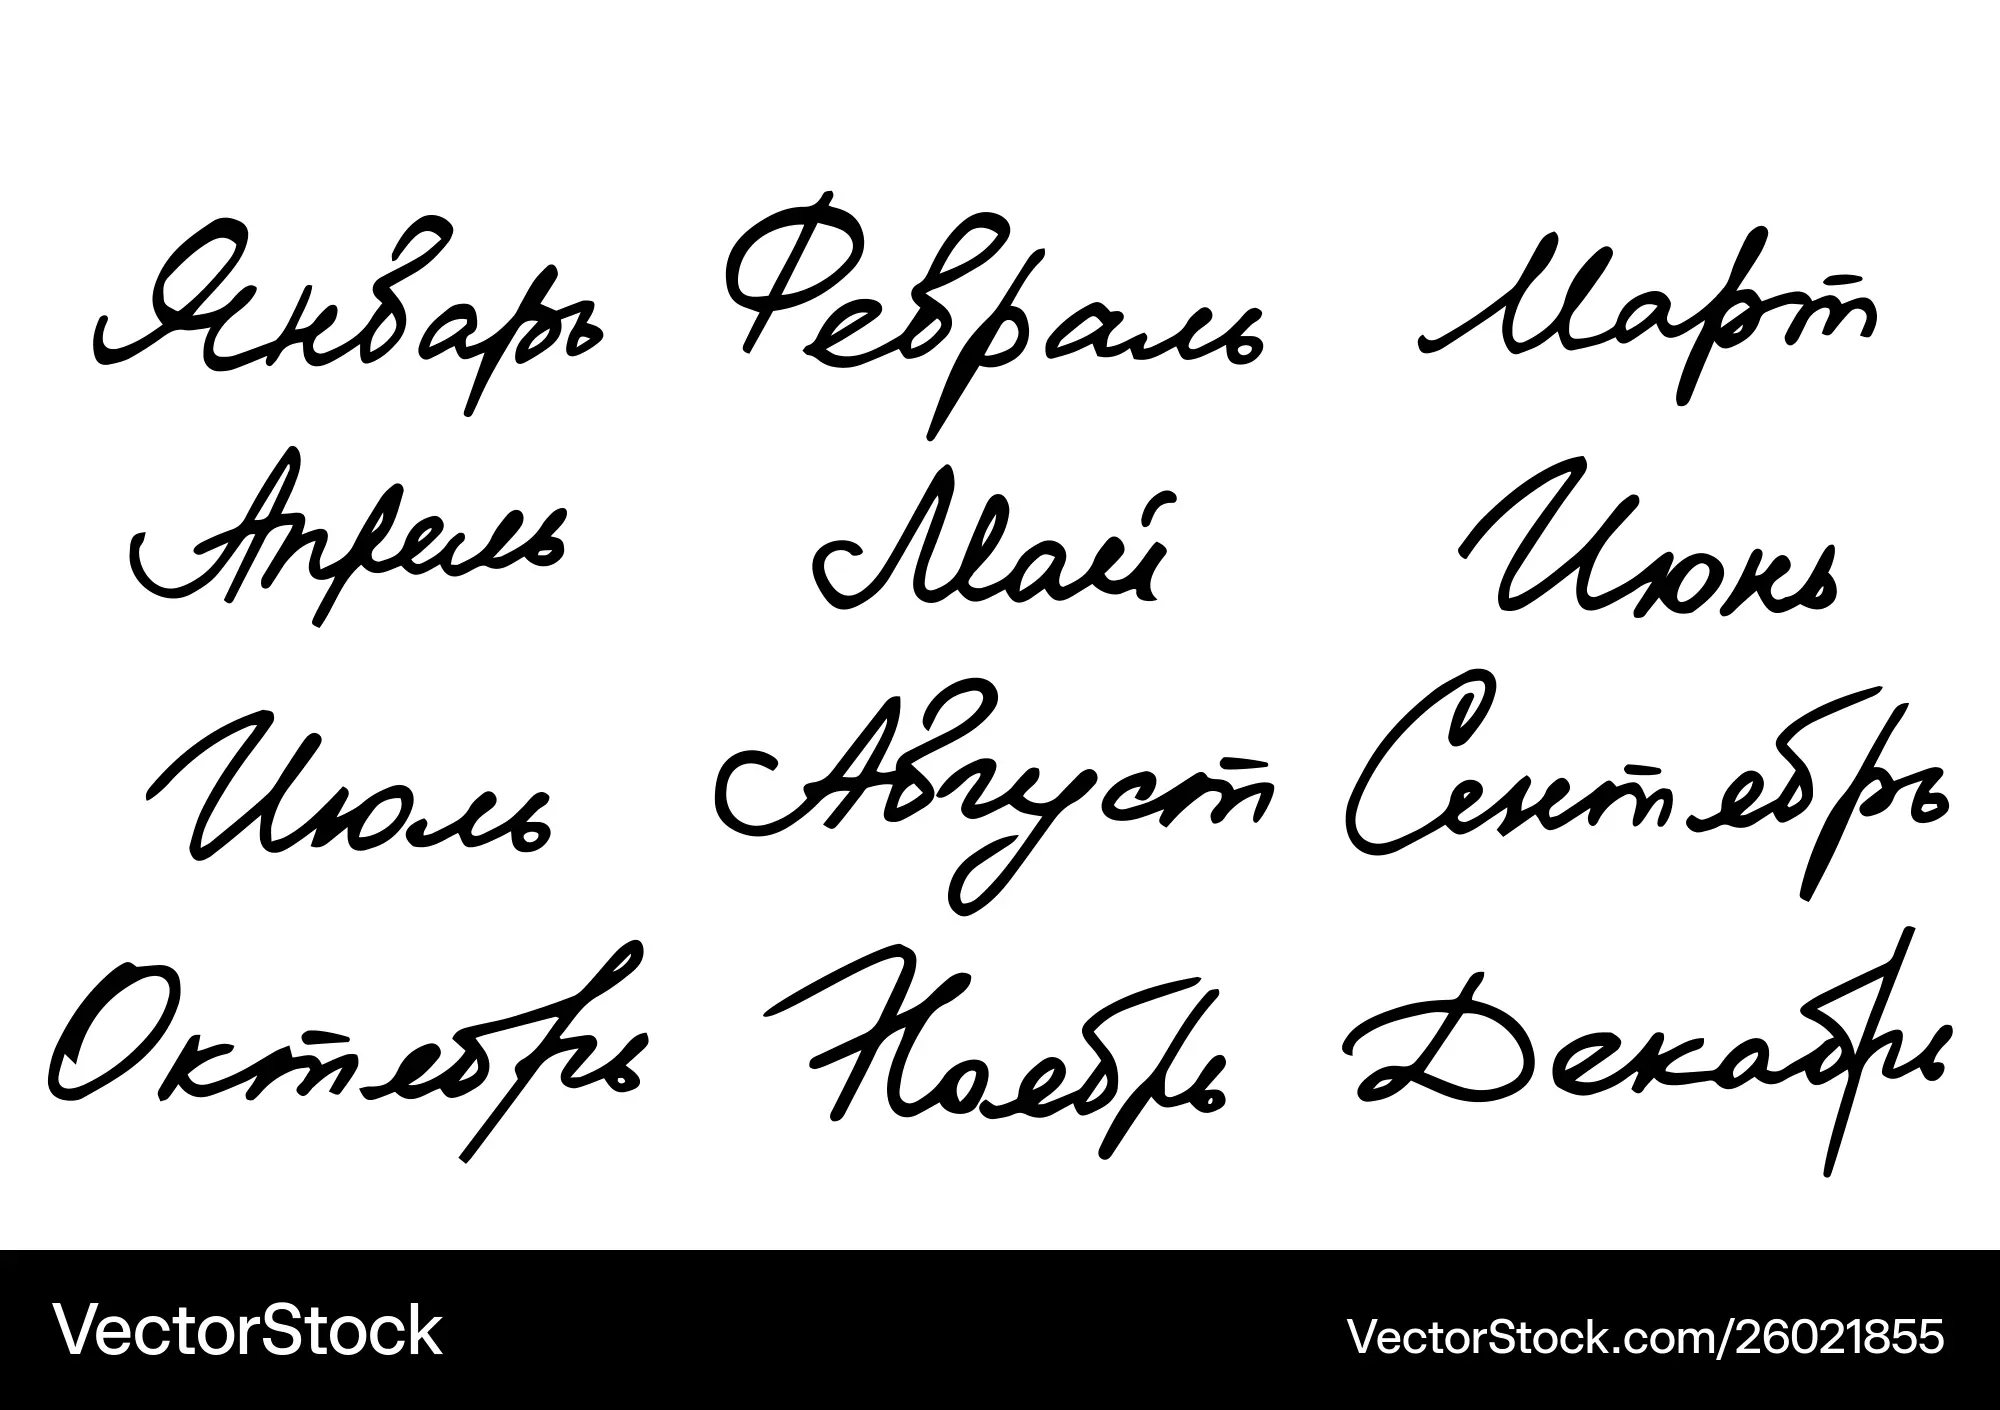 Январь Февраль Март
Апрель Май Июнь
Июль Август Сентебрь
Октебрь Ноебрь Декабрь
VectorStock VectorStock.com/26021855